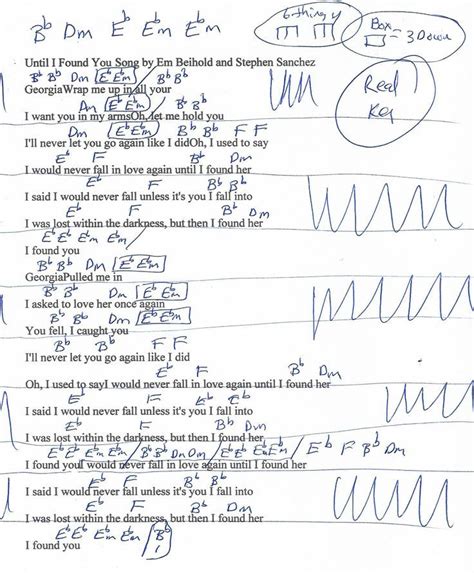 B♭ Dm E♭ Em E♭m
6-thing y
Box
= 3 Down
Until I Found You Song by Em Beihold and Stephen Sanchez
B♭ B♭ Dm E♭ E♭m B♭ B♭
GeorgiaWrap me up in all your
Dm E♭ E♭m / B♭ B♭
Real
Key
I want you in my armsOh, let me hold you
Dm E♭ E♭m B♭ B♭ F F
I'll never let you go again like I didOh, I used to say
E♭ F B♭ Dm
I would never fall in love again until I found her
E♭ F B♭ B♭
I said I would never fall unless it's you I fall into
E♭ F B♭ Dm
I was lost within the darkness, but then I found her
E♭ E♭ E♭m E♭m /
I found you
B♭ B♭ Dm E♭ E♭m
GeorgiaPulled me in
B♭ B♭ Dm E♭ E♭m
I asked to love her once again
B♭ B♭ Dm E♭ E♭m
You fell, I caught you
B♭ B♭ F F
I'll never let you go again like I did
E♭ F B♭ Dm
Oh, I used to sayI would never fall in love again until I found her
E♭ F E♭ E♭
I said I would never fall unless it's you I fall into
E♭ F B♭ Dm
I was lost within the darkness, but then I found her
E♭ E♭ E♭m E♭m / B♭ B♭ Dm Dm / E♭ E♭ E♭m E♭m / E♭ F B♭ Dm
I found youI would never fall in love again until I found her
E♭ F B♭ B♭
I said I would never fall unless it's you I fall into
E♭ F B♭ Dm
I was lost within the darkness, but then I found her
E♭ E♭ E♭m E♭m / B♭
1
I found you